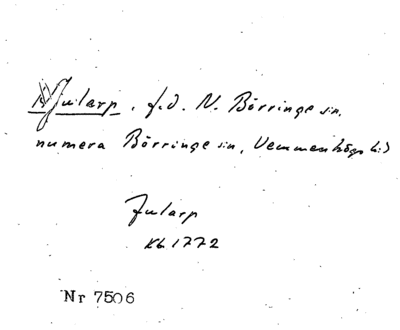 Jularp, f.d. N. Börringe sn,
numera Börringe sn, Vemmenhögs hd
Jularp
Kb 1772
Nr 7506